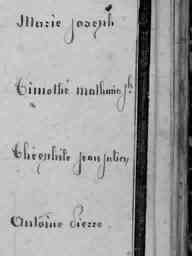 Marie joseph
Timothé mathurin jh
Théophile jean julien
Antoine Pierre